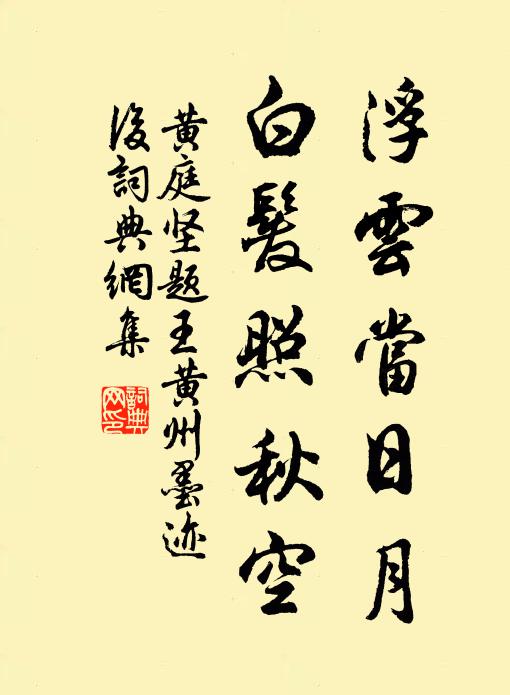 浮雲當日月
白髮照秋空
黄庭坚题王黄州墨迹
後詞典網集
詞典
网印